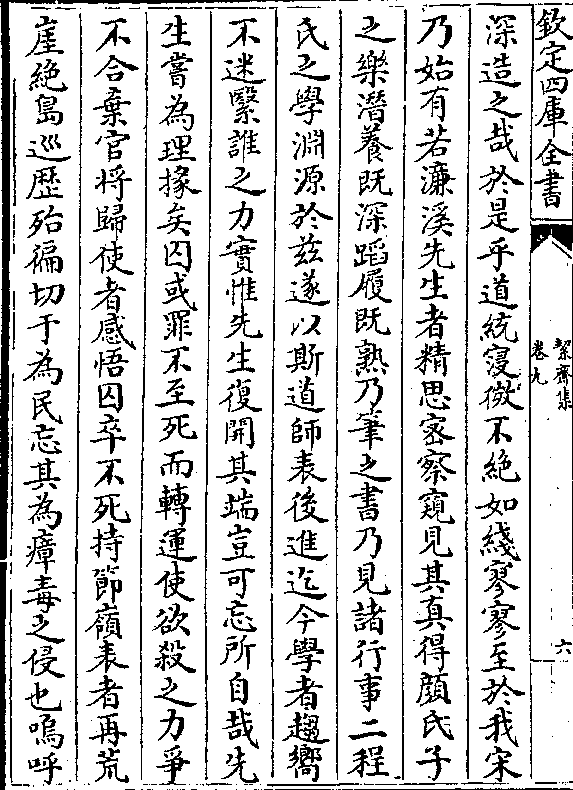 欽定四庫全書
絜齋集
卷九
六
深造之哉於是乎道統寖微不絶如綫寥寥至於我宋
乃始有若濂溪先生者精思宻察窺見其真得顔氏子
之樂潛養既深蹈履既熟乃筆之書乃見諸行事二程
氏之學淵源於兹遂以斯道師表後進迄今學者趨嚮
不迷繄誰之力實惟先生復開其端豈可忘所自哉先
生嘗為理掾矣囚或罪不至死而轉運使欲殺之力爭
不合棄官将歸使者感悟囚卒不死持節嶺表者再荒
崖絶島巡歴殆徧切于為民忘其為瘴毒之侵也嗚呼